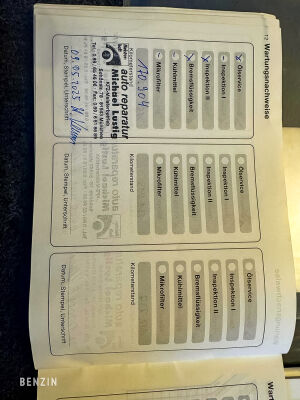 12 Wartungsnachweise
Ölservice
Inspektion I
Inspektion II
Bremsflüssigkeit
Kühlmittel
Mikrofilter
Kilometerstand
170 904
auto reparatur
Michael Lustig
KFZ-Meisterbetrieb
Datum, Stempel, Unterschrift
09.05.2025
Ölservice
Inspektion I
Inspektion II
Bremsflüssigkeit
Kühlmittel
Mikrofilter
Kilometerstand
Datum, Stempel, Unterschrift
Ölservice
Inspektion I
Inspektion II
Bremsflüssigkeit
Kühlmittel
Mikrofilter
Kilometerstand
Datum, Stempel, Unterschrift
BENZIN